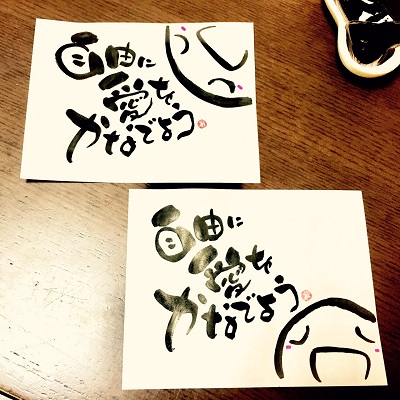 自由に
愛を、
かなでよう
自由に
愛を、
かなでよう